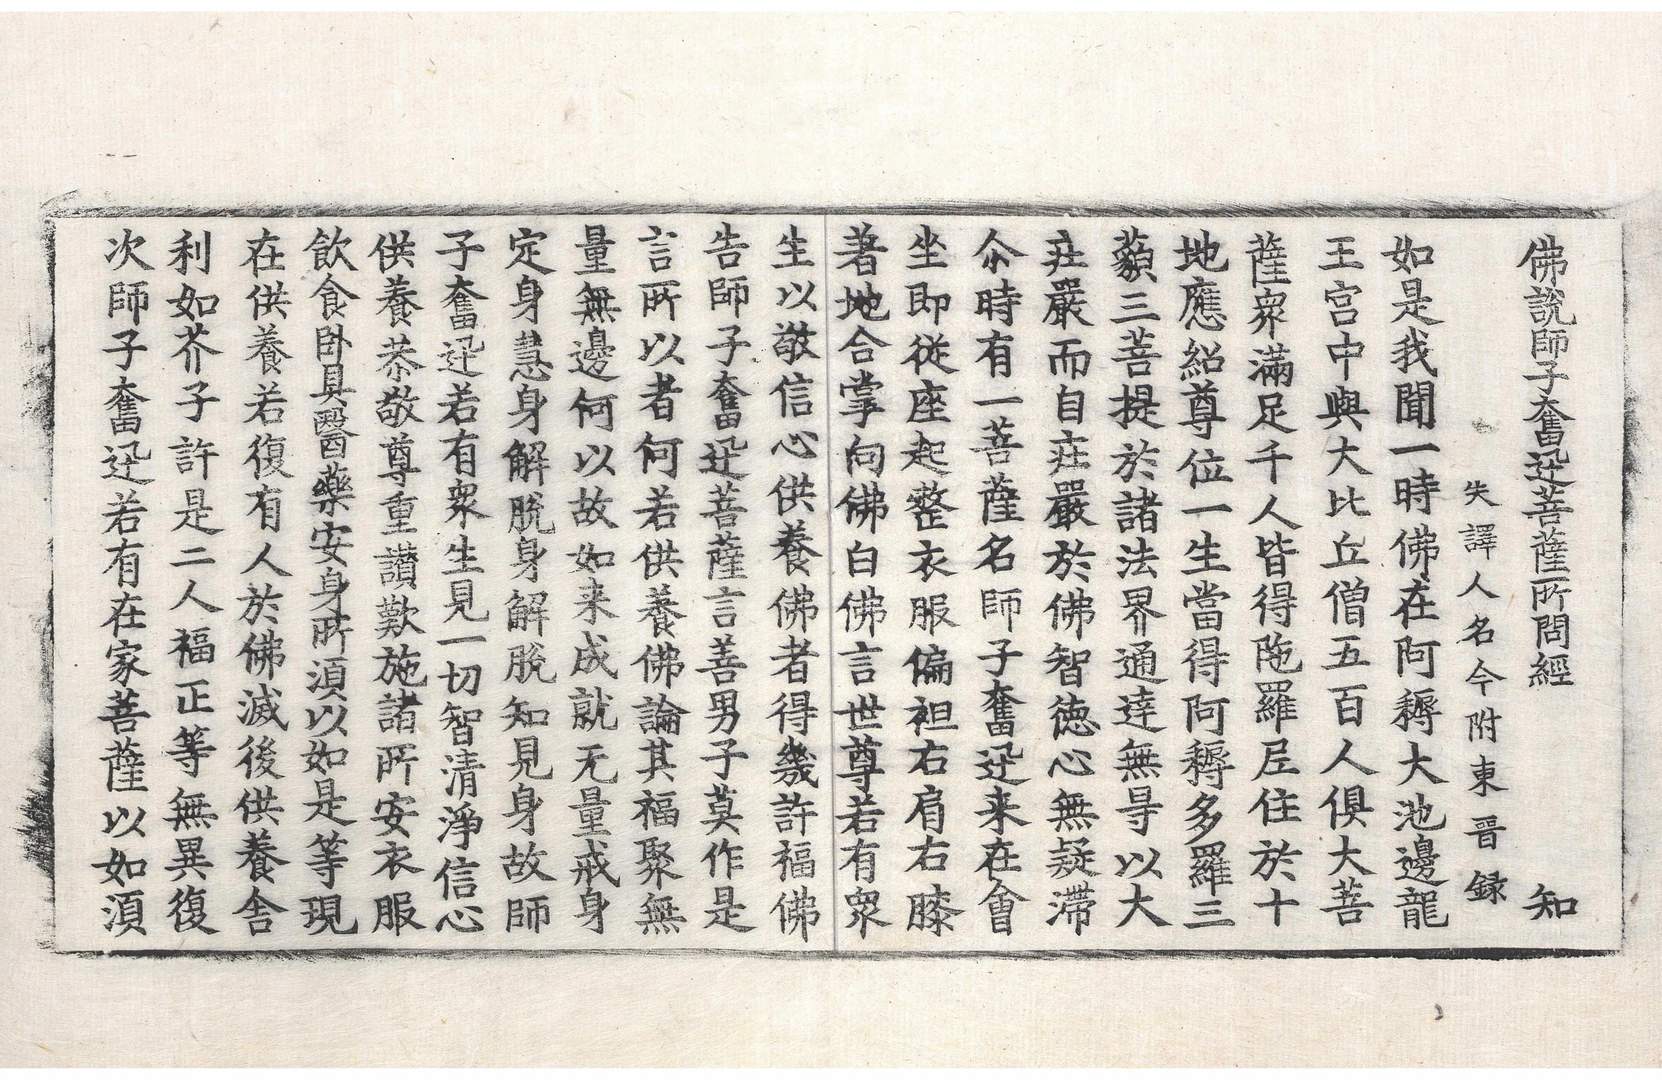 佛說師子奮迅菩薩所問經 知
失譯人名今附東晉録
如是我聞一時佛在阿耨大池邊龍
王宮中與大比丘僧五百人俱大菩
薩衆滿足千人皆得陁羅尼住於十
地應紹尊位一生當得阿耨多羅三
藐三菩提於諸法界通達無㝵以大
莊嚴而自莊嚴於佛智德心無疑滯
尒時有一菩薩名師子奮迅来在會
坐即従座起整衣服偏袒右肩右膝
著地合掌向佛白佛言世尊若有衆
生以敬信心供養佛者得幾許福佛
告師子奮迅菩薩言善男子莫作是
言所以者何若供養佛論其福聚無
量無邊何以故如来成就无量戒身
定身慧身解脫身解脫知見身故師
子奮迅若有衆生見一切智清淨信心
供養恭敬尊重讃歎施諸所安衣服
飲食卧具醫藥安身所湏以如是等現
在供養若復有人於佛滅後供養舍
利如芥子許是二人福正等無異復
次師子奮迅若有在家菩薩以如湏